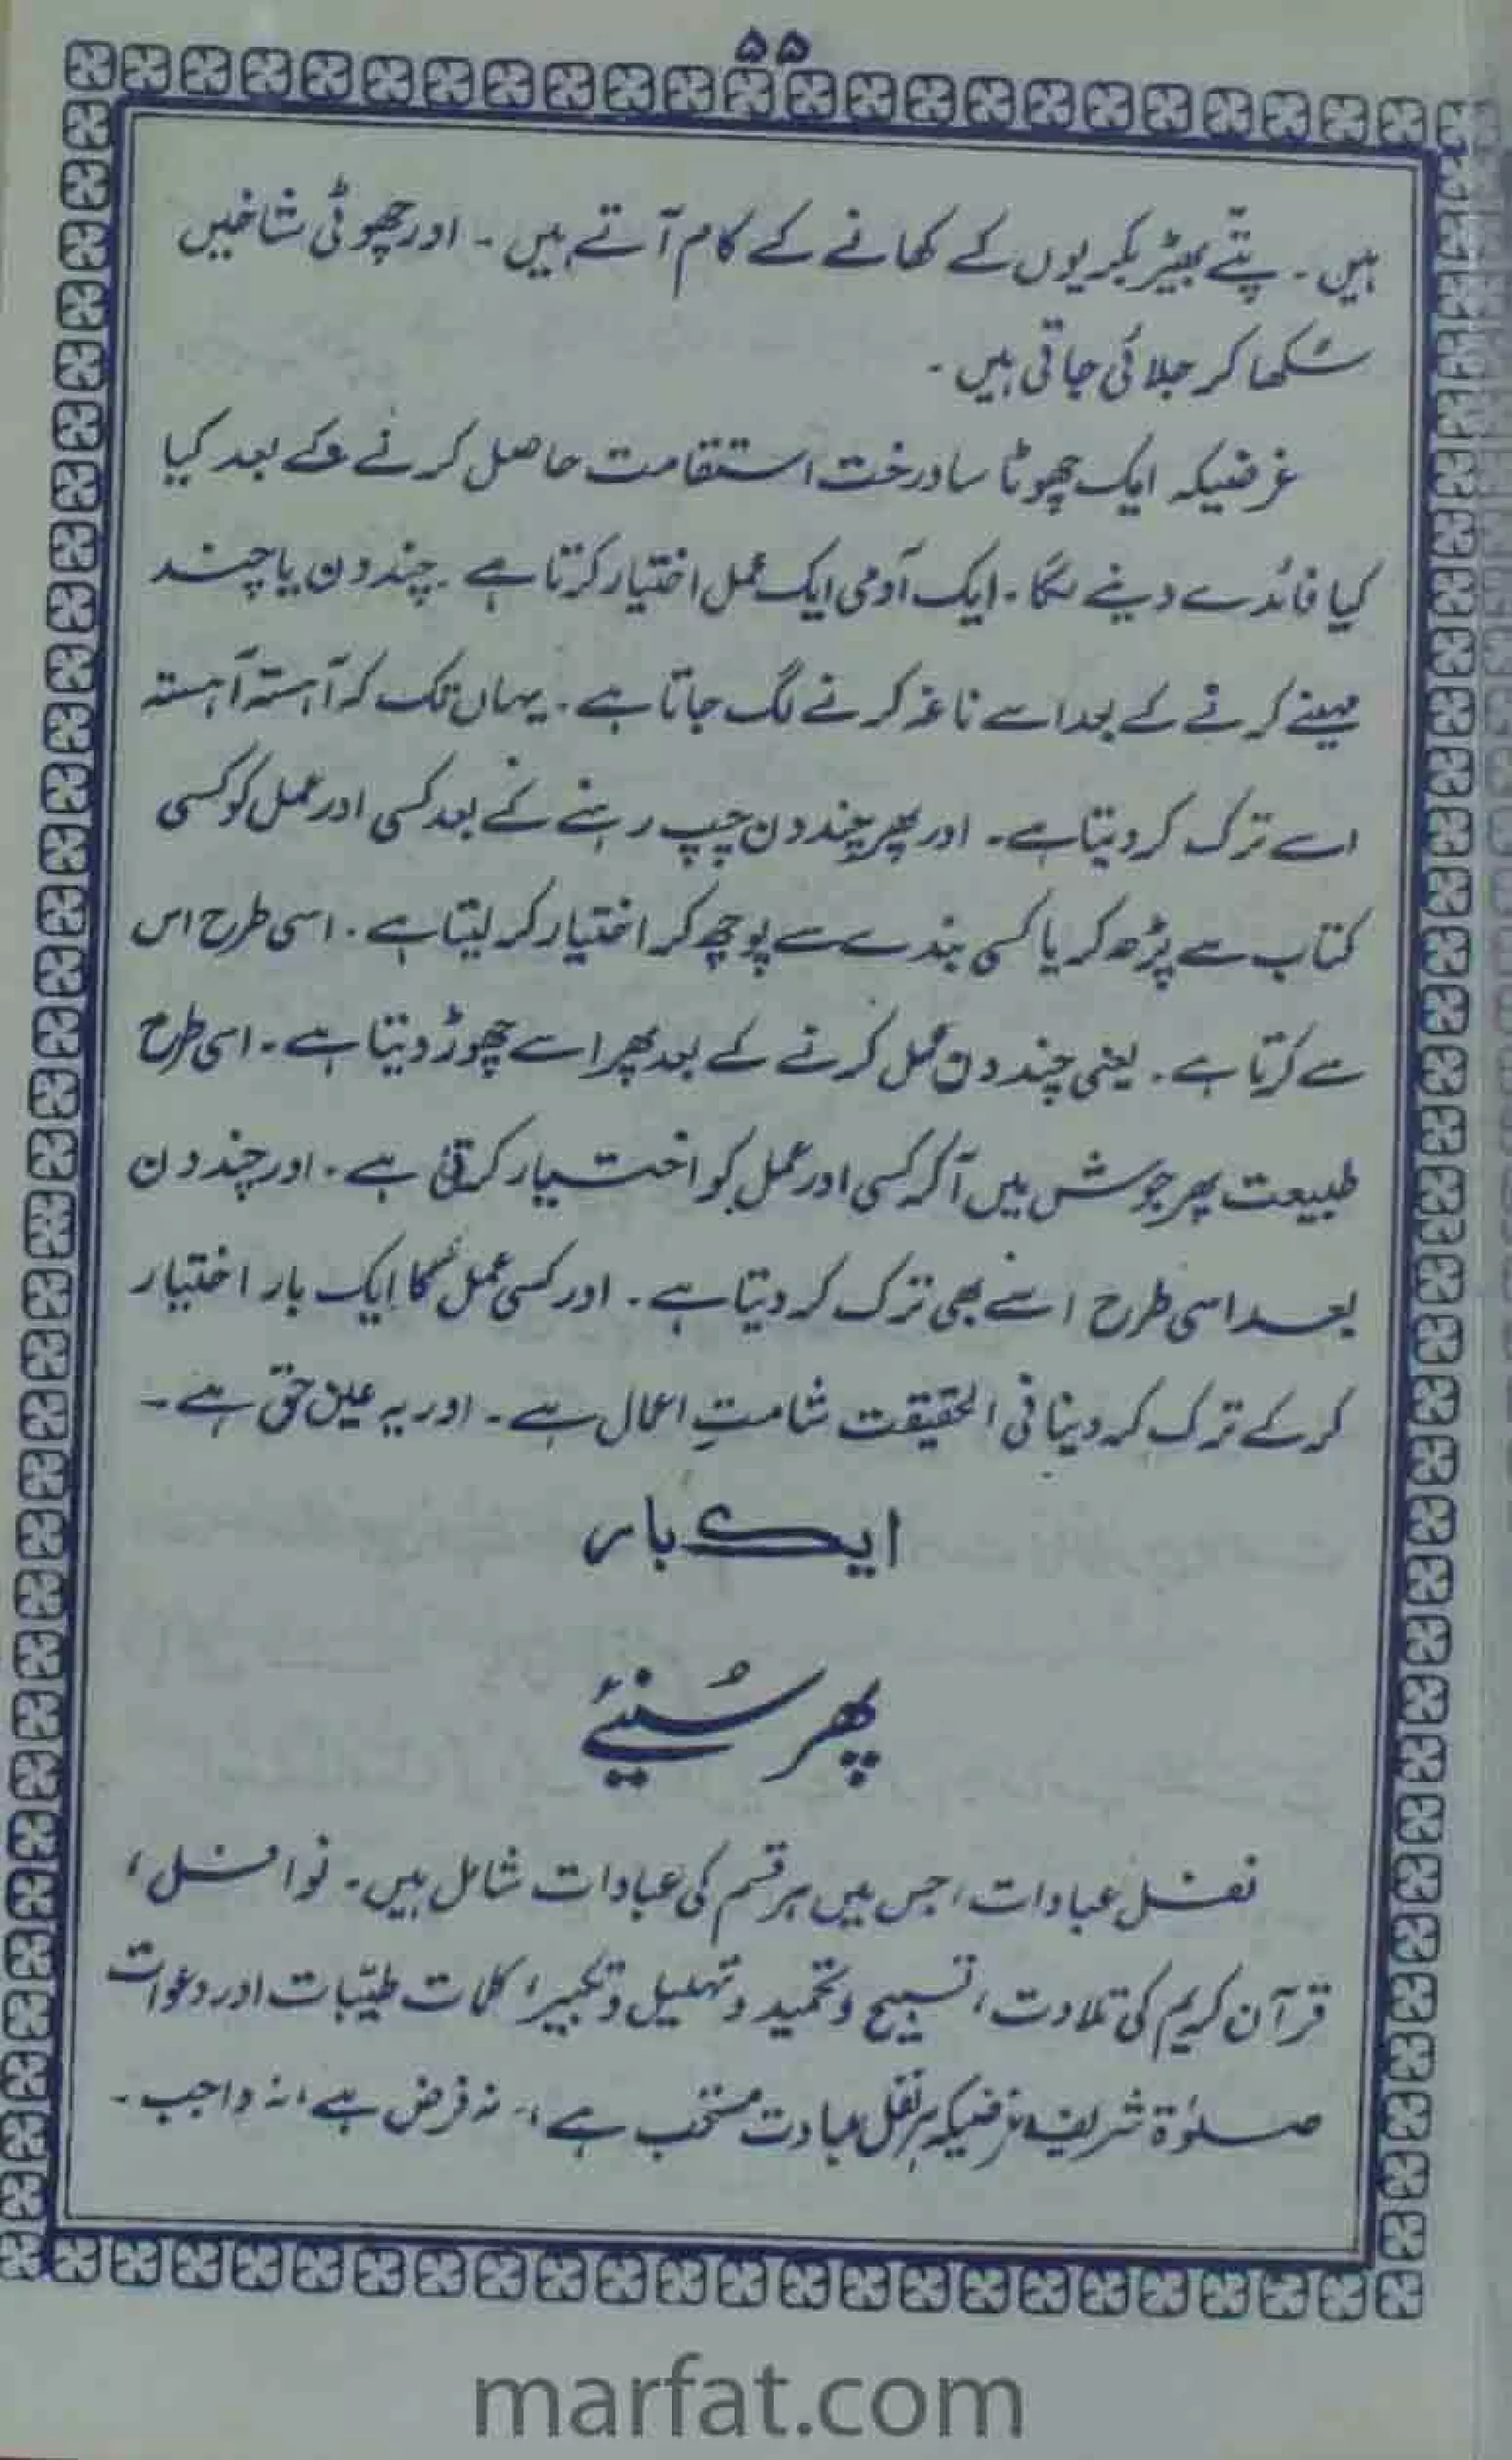 ۵۵
ہیں ۔ پتّے بھیڑ بکریوں کے کھانے کے کام آتے ہیں ۔ اور چھوٹی شاخیں
سُکھا کر جلائی جاتی ہیں ۔
غرضیکہ ایک چھوٹا سا درخت استقامت حاصل کرنے کے بعد کیا
کیا فائدے دینے لگا ۔ ایک آدمی ایک عمل اختیار کرتا ہے ۔ چند دن یا چند
مہینے کرنے کے بعد اسے ناغہ کرنے لگ جاتا ہے ۔ یہاں تک کہ آہستہ آہستہ
اسے ترک کر دیتا ہے ۔ اور پھر چند دن چپ رہنے کے بعد کسی اور عمل کو کسی
کتاب سے پڑھ کر یا کسی بندے سے پوچھ کر اختیار کر لیتا ہے ۔ اسی طرح اس
سے کرتا ہے ۔ یعنی چند دن عمل کرنے کے بعد پھر اسے چھوڑ دیتا ہے ۔ اسی طرح
طبیعت پھر جوش میں آ کر کسی اور عمل کو اختیار کرتی ہے ۔ اور چند دن
بعد اسی طرح اسے بھی ترک کر دیتا ہے ۔ اور کسی عمل کا ایک بار اختیار
کر کے ترک کر دینا فی الحقیقت شامتِ اعمال ہے ۔ اور یہ عین حق ہے ۔
ایک بار
پھر سُنیئے
نفل عبادات ، جس میں ہر قسم کی عبادات شامل ہیں ۔ نوافل ،
قرآن کریم کی تلاوت ، تسبیح و تحمید و تہلیل و تکبیر ، کلمات طیّبات اور دعوات
صلوٰۃ شریف غرضیکہ ہر نفل عبادت مستحب ہے ، نہ فرض ہے ، نہ واجب ۔
marfat.com